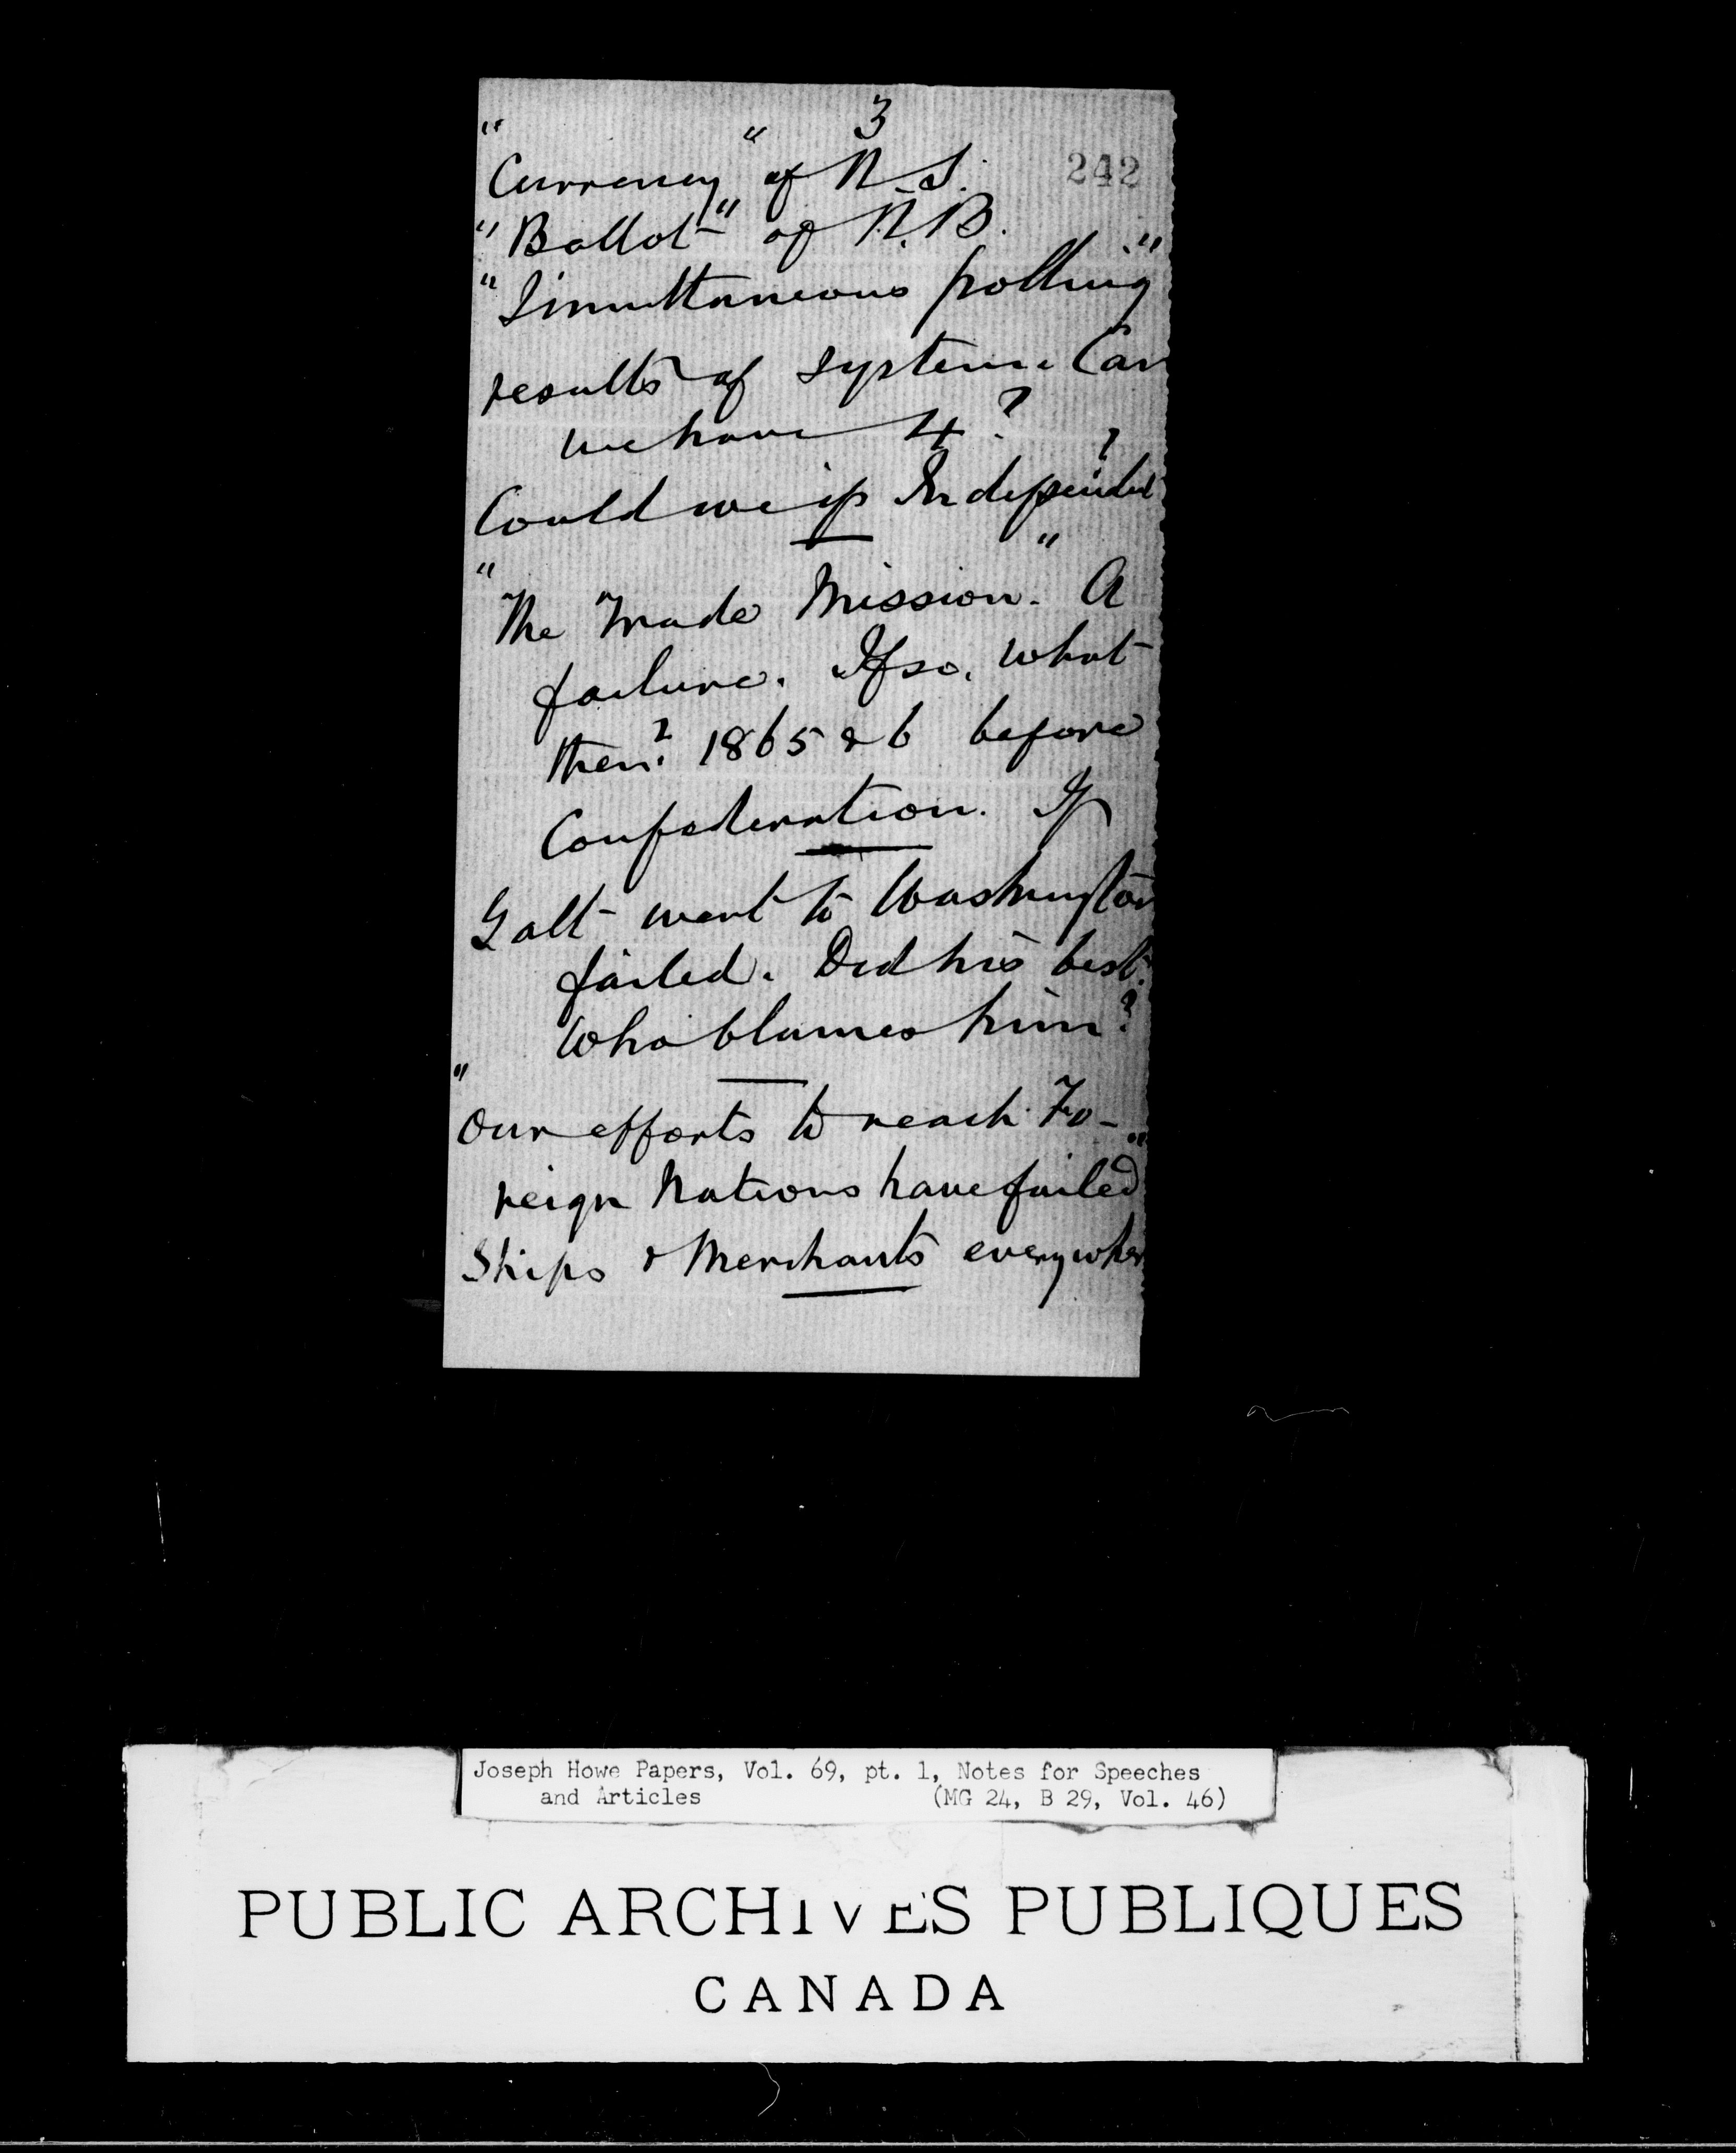 3
242
"Currency" of N.S.
"Ballot" of N.B.
"Simultaneous polling"
results of system. Can
we have 4?
Could we if Independent?
"The Trade Mission." A
failure. If so, what
then? 1865 & 6 before
Confederation. If
Galt went to Washington
failed. Did his best.
Who blames him?
"Our efforts to reach Fo-
reign Nations have failed"
Ships & Merchants everywher
Joseph Howe Papers, Vol. 69, pt. 1, Notes for Speeches
and Articles (MG 24, B 29, Vol. 46)
PUBLIC ARCHIVES PUBLIQUES
CANADA